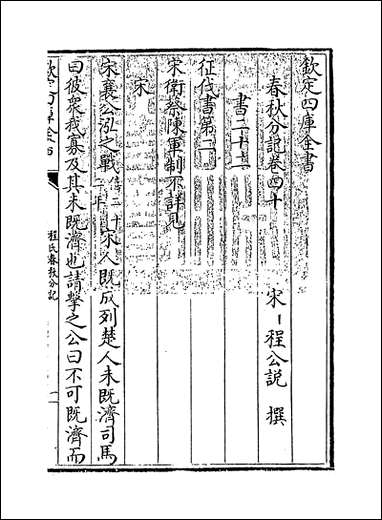 欽定四庫全書
春秋分記卷四十
宋 程公說 撰
書二十二
征伐書第二
宋衛蔡陳軍制不詳見
宋
宋襄公泓之戰僖二十二年宋人既成列楚人未既濟司馬
曰彼衆我寡及其未既濟也請擊之公曰不可既濟而
欽定四庫全書
程氏春秋分記
一